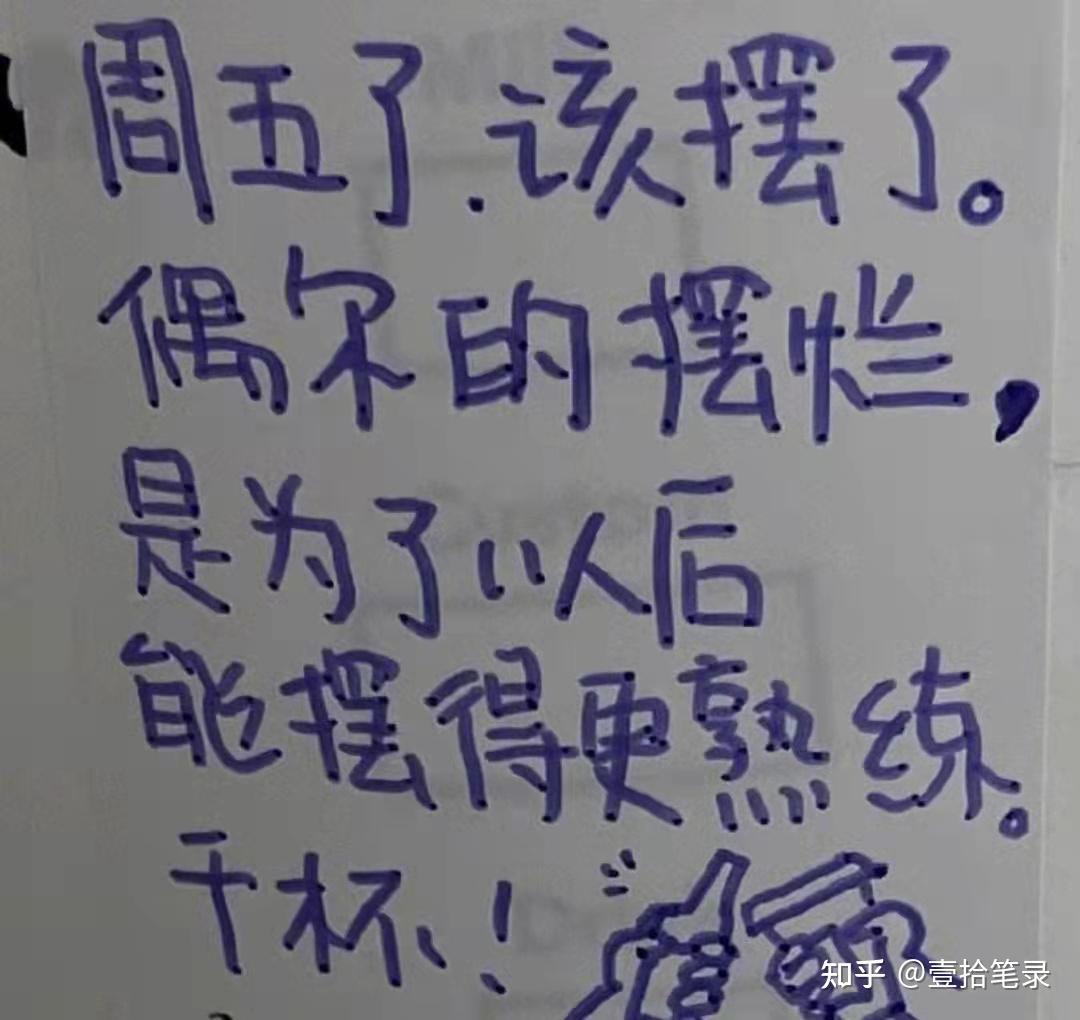 周五了.该摆了。
偶尔的摆烂,
是为了以后
能摆得更熟练。
干杯、!
知乎 @壹拾笔录